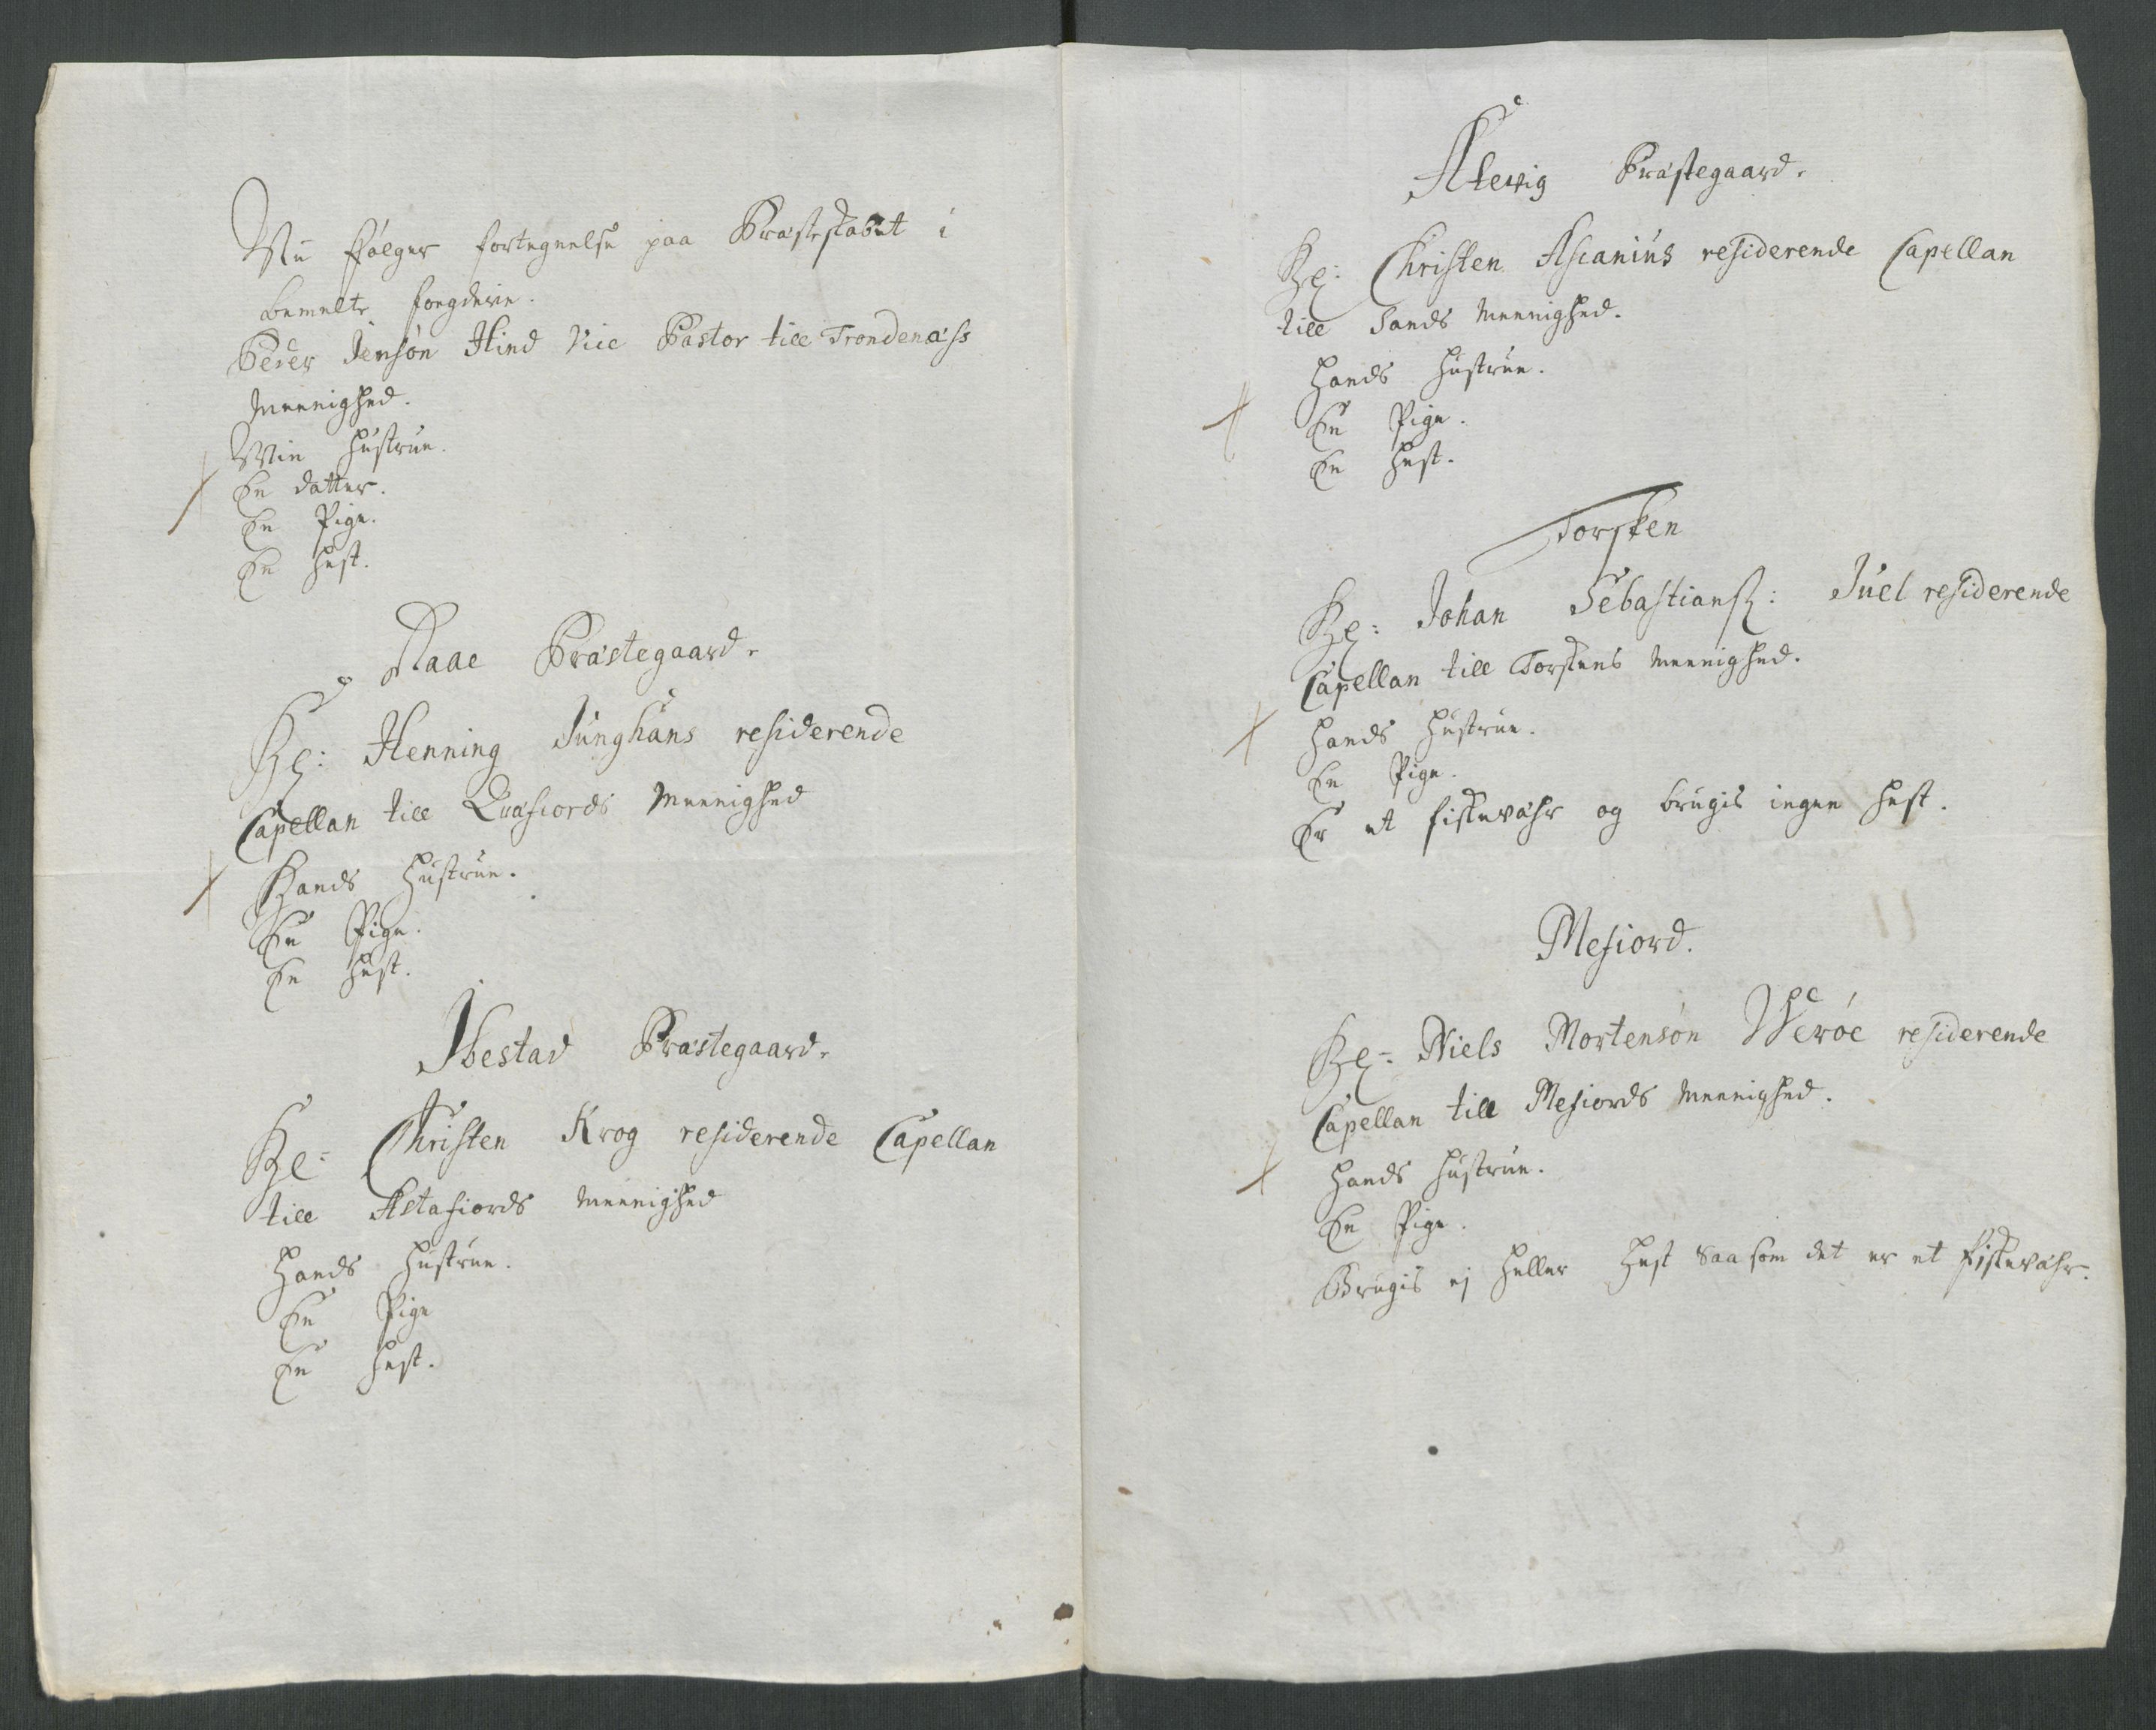 Nu Følger fortegnelse paa Præsteskabet i
bemelte foegderie.
Peder Jensøn Hind Vice Pastor till Trondenæss
Meenighed.
Min hustrue.
En datter.
En Pige.
En hest.
Raae Præstegaard.
Hr: Henning Junghans residerende
Capellan till Qvæfiords Meenighed
Hands hustrue.
En Pige.
En hest.
Ibestad Præstegaard.
Hr: Christen Krog residerende Capellan
till Astafiords meenighed
hands hustrue.
En Pige
En hest.
Alevig Præstegaard.
Hr: Christen Ascanius residerende Capellan
till Sands meenighed.
hands hustrue.
En Pige.
En hest.
Torsken
Hr: Johan Sebastians: Juel residerende
Capellan till Torskens meenighed.
hands hustrue.
En Pige.
Er et fiskevæhr og brugis ingen hest.
Mefiord.
Hr: Niels Mortensøn Werøe residerende
Capellan till Mefiords meenighed.
hands hustrue.
En Pige.
Brugis ej heller hest saasom det er et fiskevæhr.